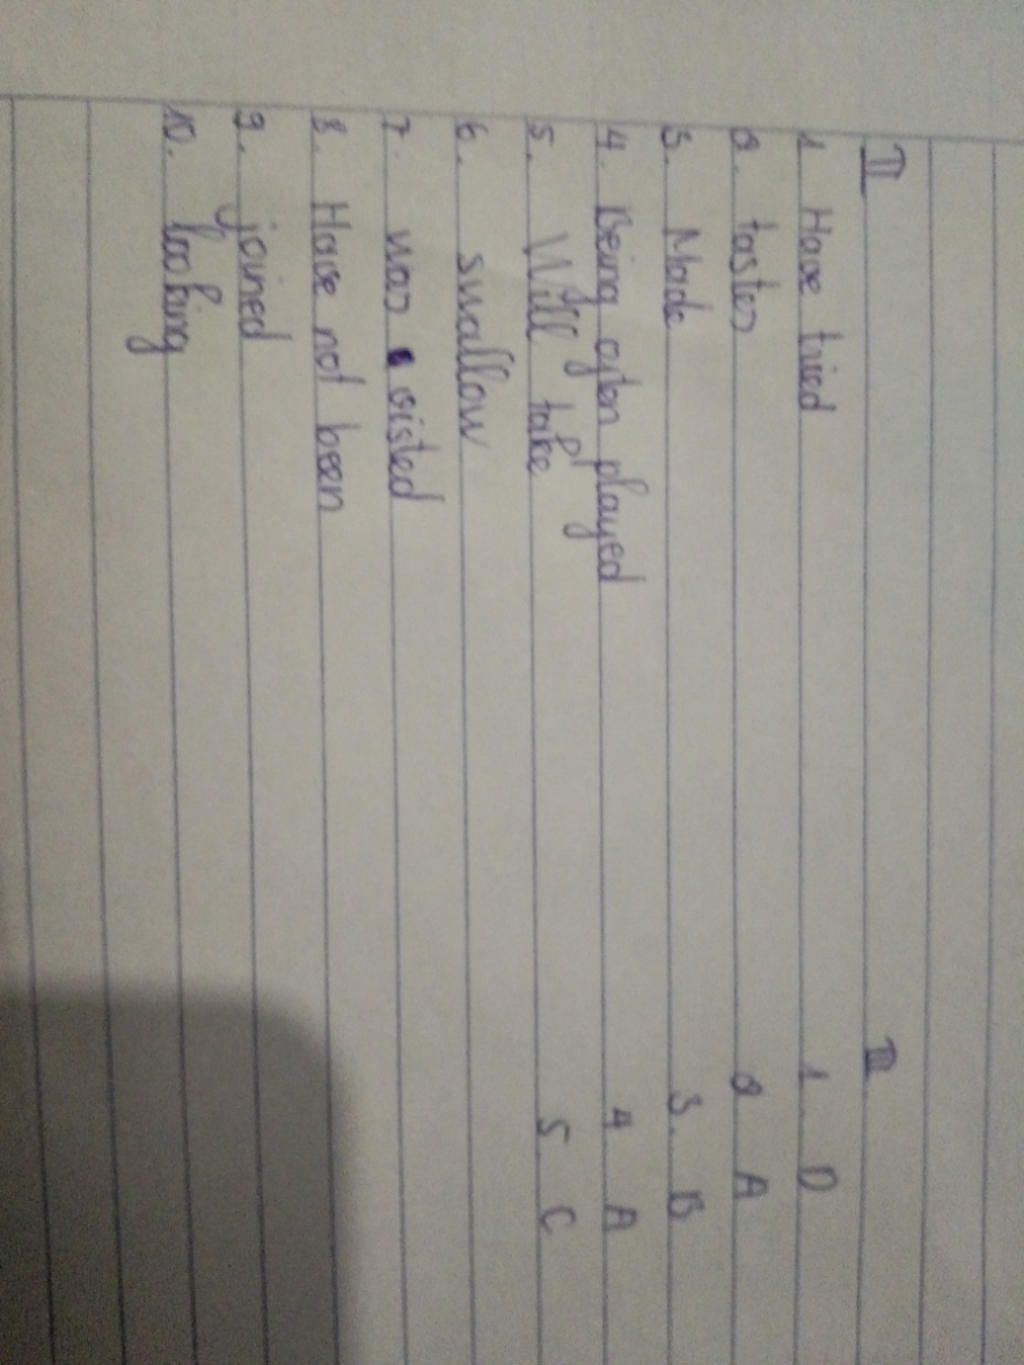 II
1 Have tried
2. tastes
3. Made
4. Being often played
5. Will take
6. swallow
7. was visited
8. Have not been
9. joined
10. looking
III
1. D
2 A
3. B
4 A
5 C